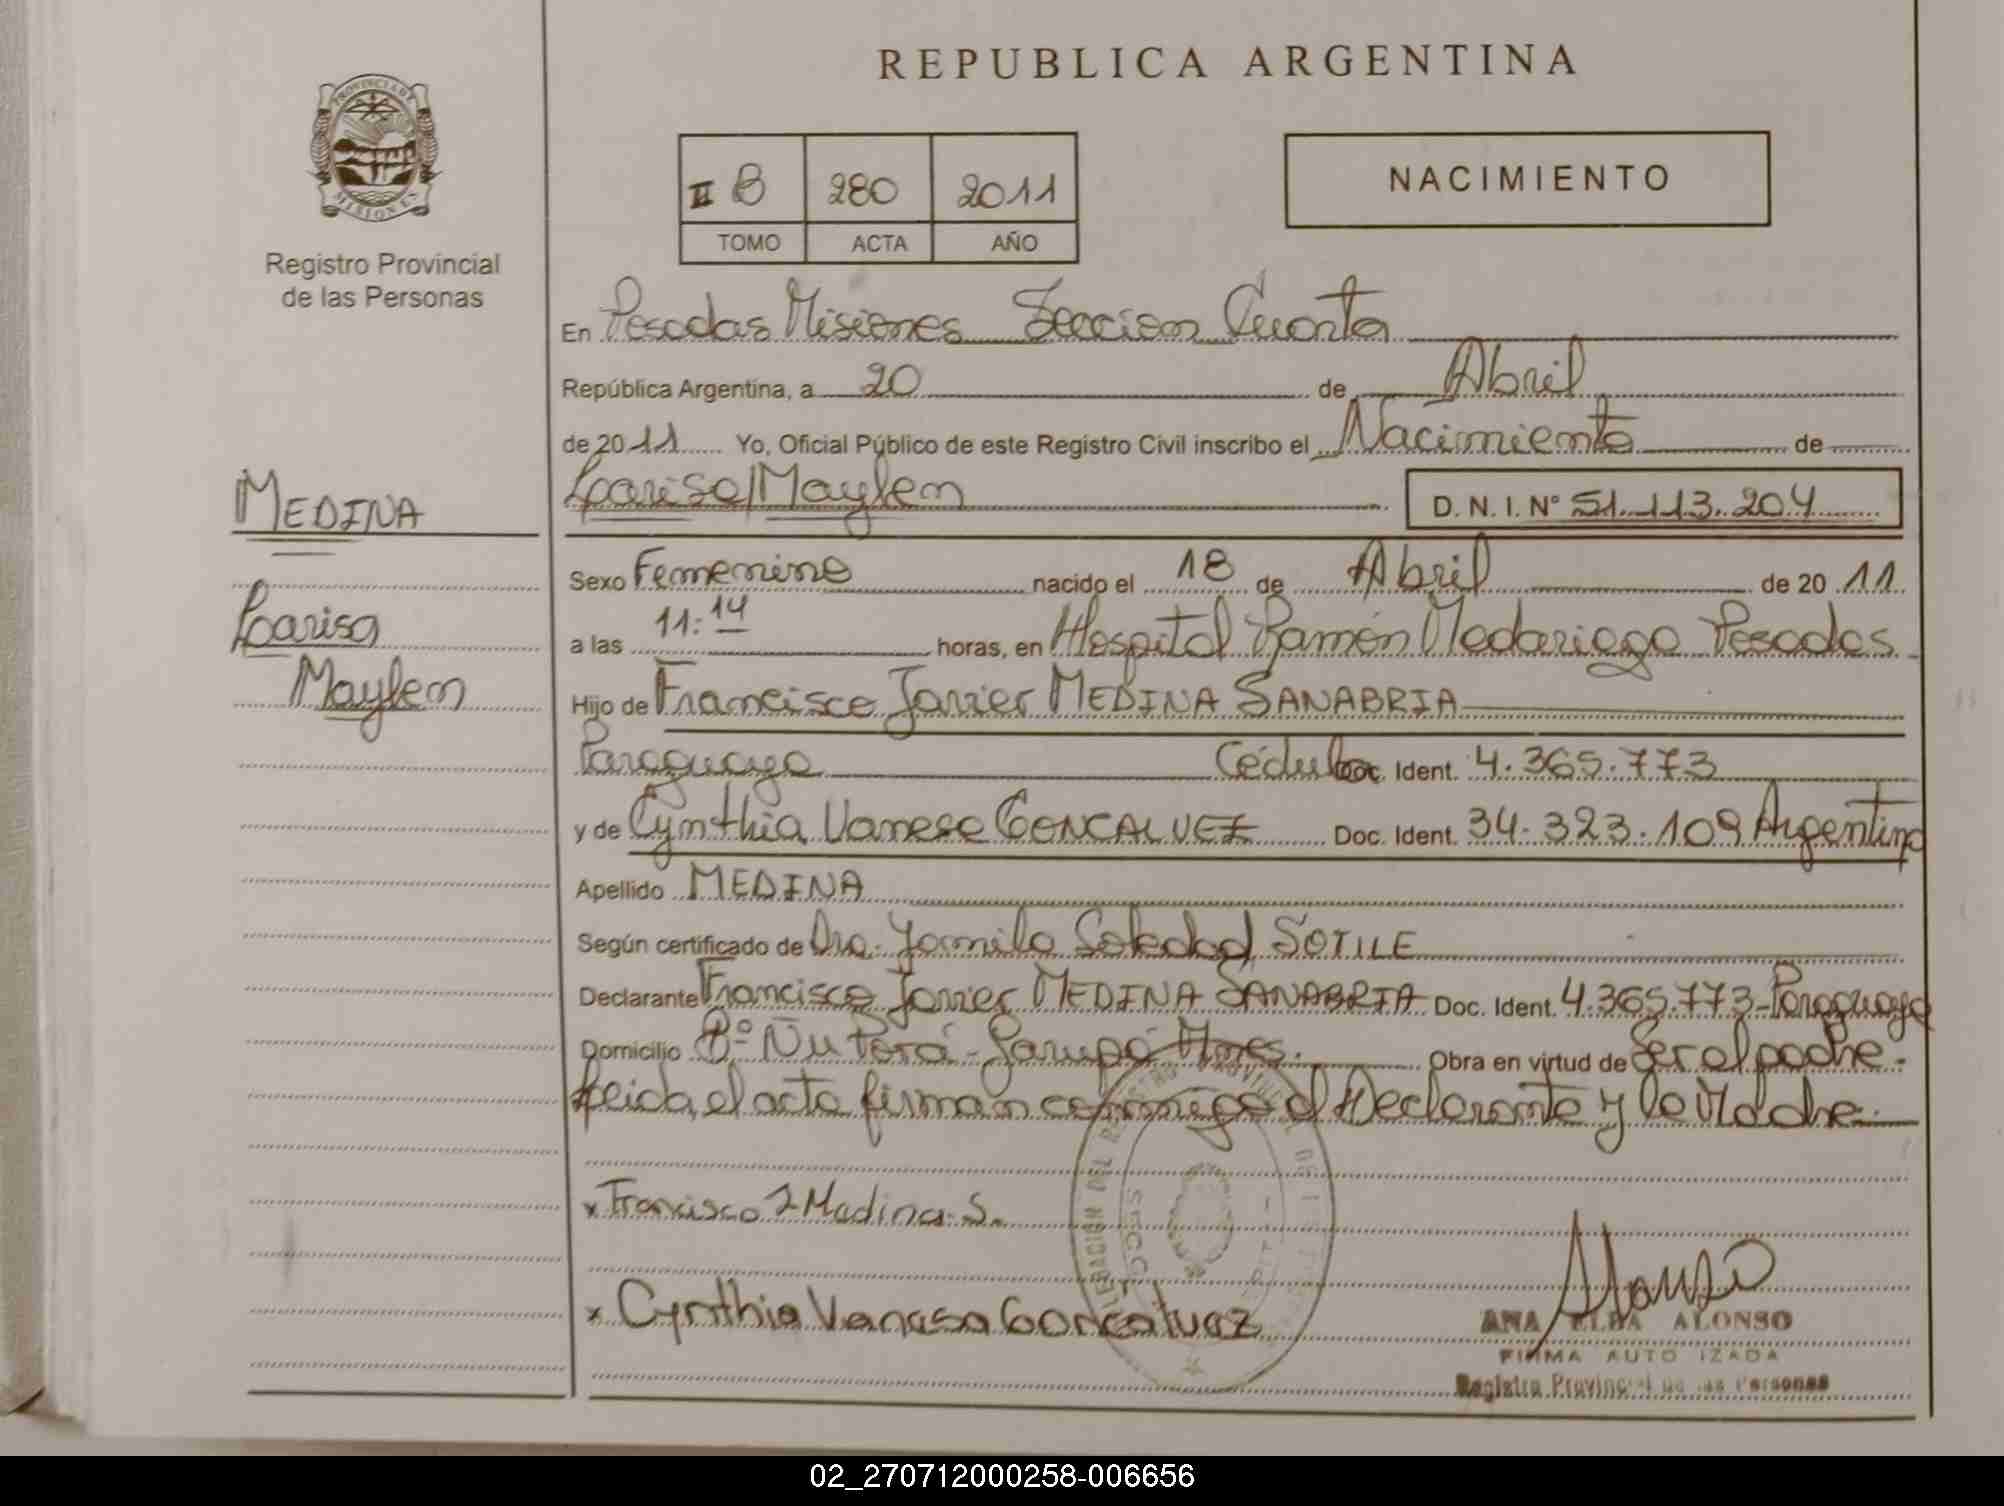 REPUBLICA ARGENTINA
PROVINCIA DE
MISIONES
Registro Provincial
de las Personas
II B 280 2011
TOMO ACTA AÑO
NACIMIENTO
En Posadas Misiones Seccion Cuarta
República Argentina, a 20 de Abril
de 2011 Yo, Oficial Público de este Registro Civil inscribo el Nacimiento de
Larisa Maylen D. N. I. Nº 51.113.204
MEDINA
Larisa
Maylen
Sexo Femenino nacido el 18 de Abril de 2011
a las 11:14 horas, en Hospital Ramón Madariaga Posadas
Hijo de Francisco Javier MEDINA SANABRIA
Paraguayo Cédula Doc. Ident. 4.365.773
y de Cynthia Vanesa GONCALVEZ Doc. Ident. 34.323.109 Argentina
Apellido MEDINA
Según certificado de Dra. Yamila Soledad SOTILE
Declarante Francisco Javier MEDINA SANABRIA Doc. Ident. 4.365.773-Paraguayo
Domicilio Bº Ñu Porá - Garupá Mnes. Obra en virtud de Ser el padre.
Leida el acta firman conmigo el Declarante y la Madre.
x Francisco J Medina. S.
x Cynthia Vanesa Goncalvez
ANA ELBA ALONSO
FIRMA AUTORIZADA
Registro Provincial de las Personas
02_270712000258-006656